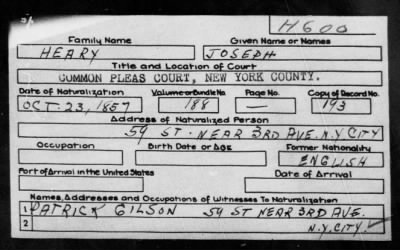 H600
Family Name Given Name or Names
HEARY JOSEPH
Title and Location of Court
COMMON PLEAS COURT, NEW YORK COUNTY.
Date of Naturalization Volume or Bundle No. Page No. Copy of Record No.
OCT. 23, 1857 188 — 193
Address of Naturalized Person
59 ST. NEAR 3RD AVE. N.Y. CITY
Occupation Birth Date or Age Former Nationality
ENGLISH
Port of Arrival in the United States Date of Arrival
Names, Addresses and Occupations of Witnesses To Naturalization
1 PATRICK GILSON 54 ST NEAR 3RD AVE.
2 N.Y. CITY.